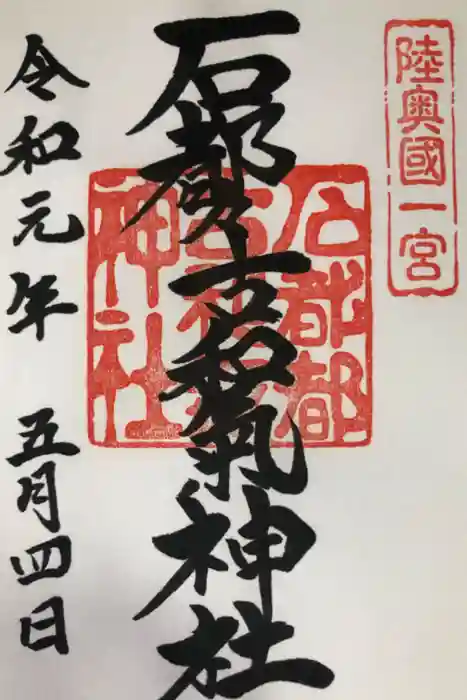 陸奥國一宮
石都々古和氣神社
石都都
古和氣
神社
令和元年 五月四日